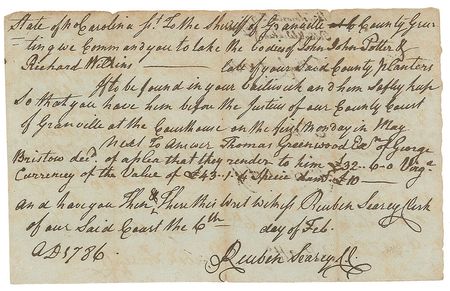 State of No Carolina St. To the Sheriff of Granville County Gree
ting we Command you to take the bodey of John Potter &
Richard Wilkins late of your Said County Planters
If to be found in your bailiwick and him Safley keep
So that you have him before the Justices of our County Court
of Granville at the Courthouse on the first Monday in May
next To answer Thomas Greenwood Exr of George
Bristow decd. of a plea that they render to him £32-0-0 Virga
Currency of the Value of £43-1-4 Specie dam. £10
and have you Then & There this Writ Witness Reuben Searcy Clerk
of our Said Court the 6th day of Feb.
AD 1786.
Reuben Searcy CC.